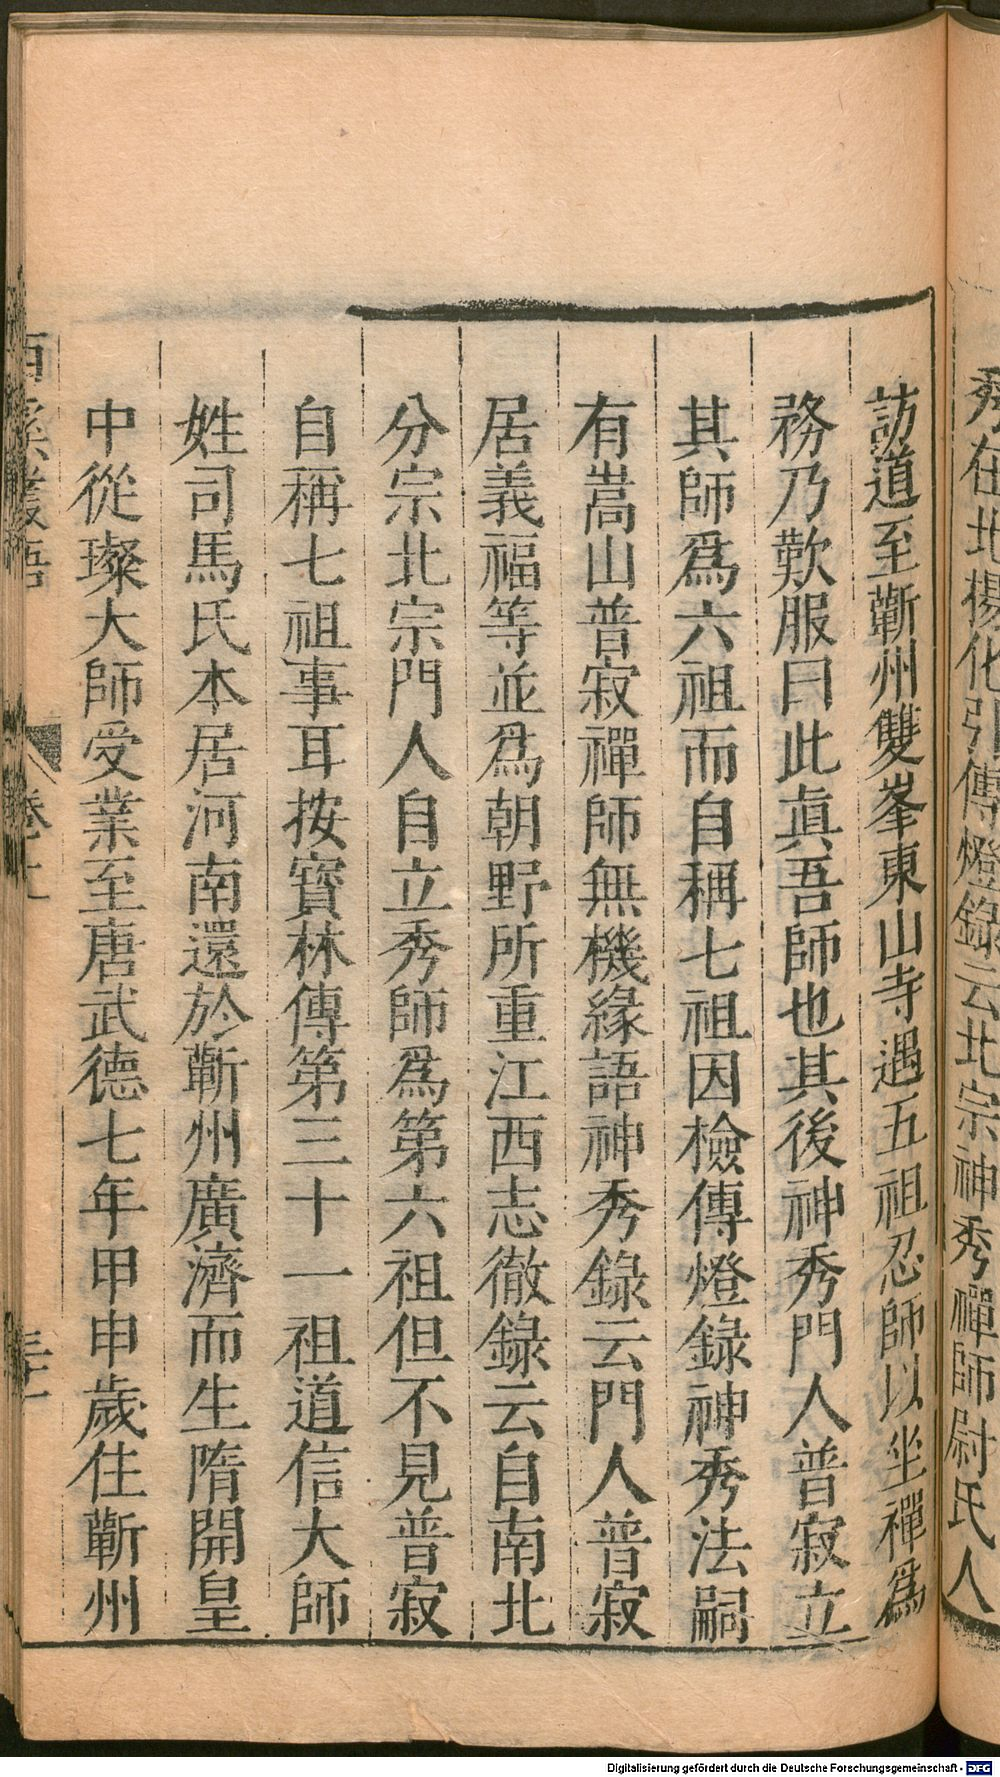 秀在北揚化引傳燈錄云北宗神秀禪師尉氏人
訪道至蘄州雙峯東山寺遇五祖忍師以坐禪爲
務乃歎服曰此真吾師也其後神秀門人普寂立
其師爲六祖而自稱七祖因檢傳燈錄神秀法嗣
有嵩山普寂禪師無機緣語神秀錄云門人普寂
居義福等並爲朝野所重江西志徹錄云自南北
分宗北宗門人自立秀師爲第六祖但不見普寂
自稱七祖事耳按寳林傳第三十一祖道信大師
姓司馬氏本居河南還於蘄州廣濟而生隋開皇
中從璨大師受業至唐武德七年甲申歲住蘄州
西溪叢語
卷上
三十一
Digitalisierung gefördert durch die Deutsche Forschungsgemeinschaft - DFG